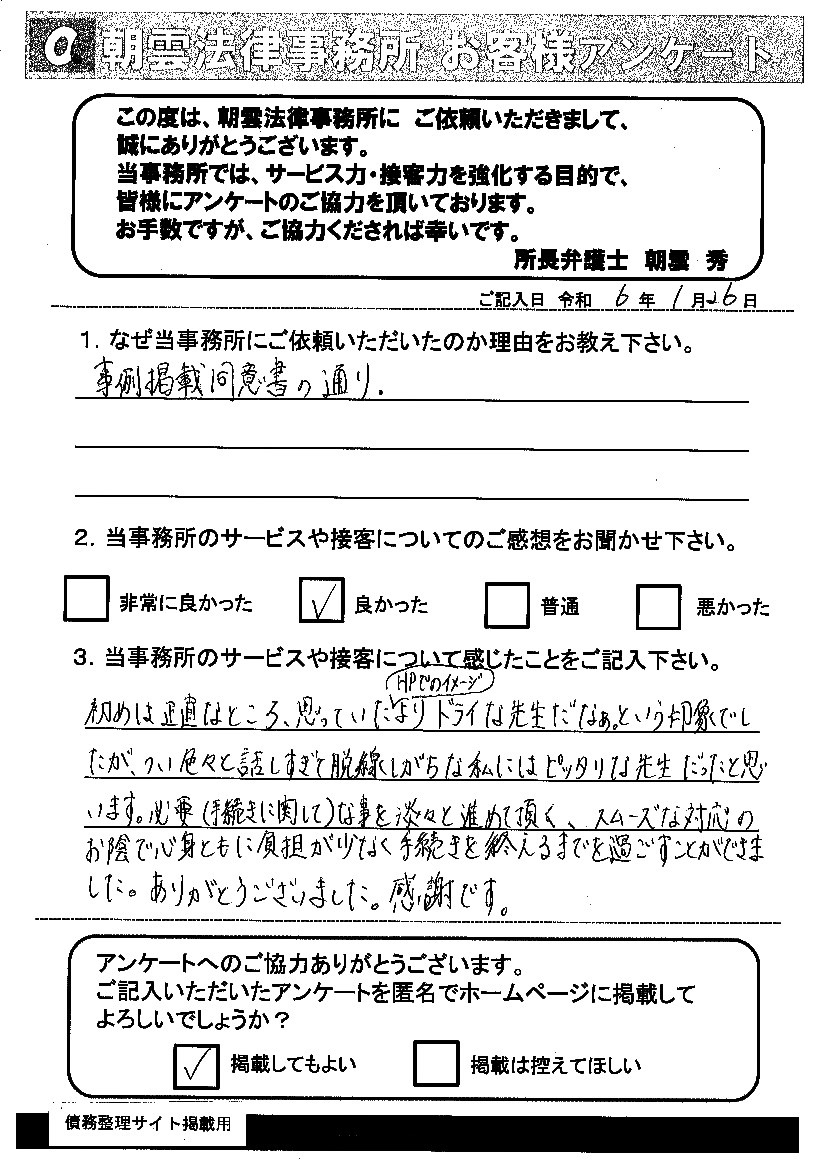 a 朝雲法律事務所 お客様アンケート
この度は、朝雲法律事務所に ご依頼いただきまして、
誠にありがとうございます。
当事務所では、サービス力・接客力を強化する目的で、
皆様にアンケートのご協力を頂いております。
お手数ですが、ご協力くだされば幸いです。
所長弁護士 朝雲 秀
ご記入日 令和 6 年 1 月 26 日
1. なぜ当事務所にご依頼いただいたのか理由をお教え下さい。
事例掲載同意書の通り.
2. 当事務所のサービスや接客についてのご感想をお聞かせ下さい。
非常に良かった ✓ 良かった 普通 悪かった
3. 当事務所のサービスや接客について感じたことをご記入下さい。
HPでのイメージ
初めは正直なところ、思っていたよりドライな先生だなぁ。という印象でし
たが、つい色々と話しすぎて脱線しがちな私にはピッタリな先生だったと思
います。必要(手続きに関して)な事を淡々と進めて頂く、スムーズな対応の
お陰で心身ともに負担が少なく手続きを終えるまでを過ごすことができま
した。ありがとうございました。感謝です。
アンケートへのご協力ありがとうございます。
ご記入いただいたアンケートを匿名でホームページに掲載して
よろしいでしょうか？
✓ 掲載してもよい 掲載は控えてほしい
債務整理サイト掲載用